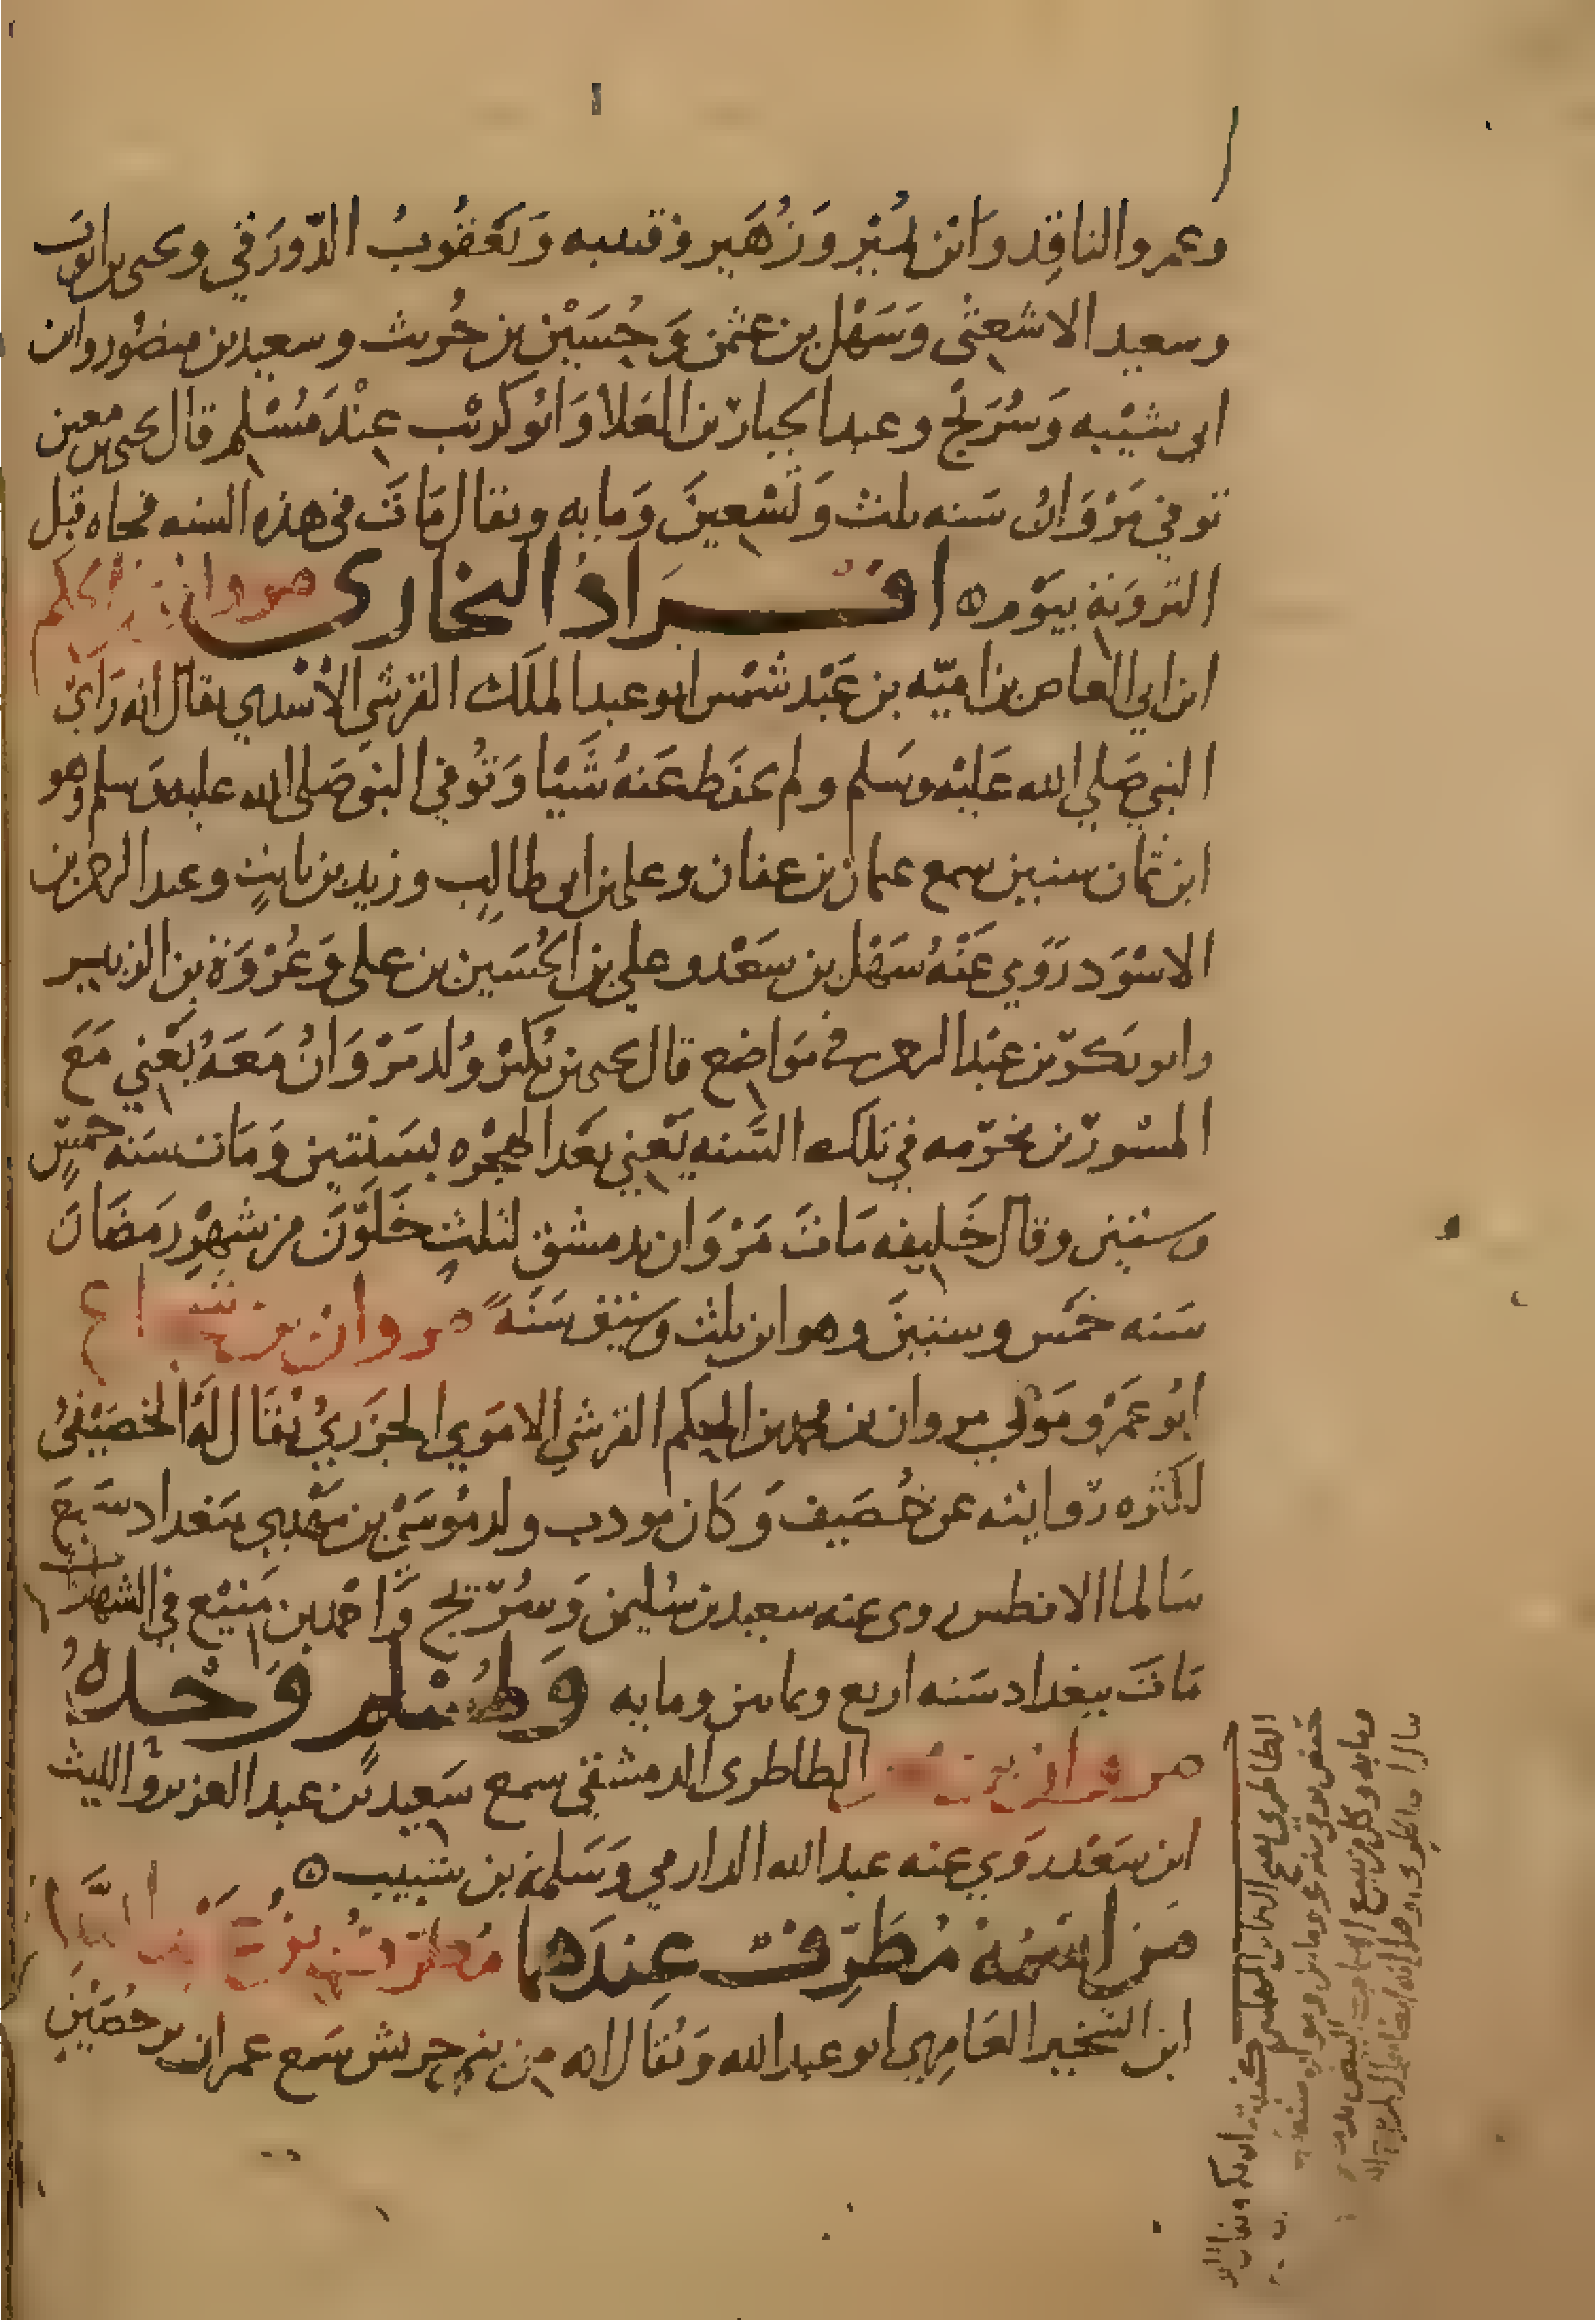 وعمرو الناقد وابن نمير وزهير وقتيبه ويعقوب الدورقي ويحيى بن ايوب
وسعيد الاشعثي وسهل بن عثمن وحسين بن حريث وسعيد بن منصور وابن
ابي شيبه وسريج وعبد الجبار بن العلا وابو كريب عند مسلم قال يحيى بن معين
توفي مروان سنه ثلث وتسعين ومايه ويقال مات في هذه السنه فجاه قبل
التروية بيوم ه افراد البخاري مروان بن الحكم
ابن ابي العاص بن اميه بن عبد شمس ابو عبد الملك القرشي الاسدي يقال انه راى
النبي صلي الله عليه وسلم ولم يحفظ عنه شيا وتوفي النبي صلى الله عليه وسلم وهو
ابن ثمان سنين سمع عثمان بن عفان وعلى بن ابي طالب وزيد بن ثابت وعبد الرحمن بن
الاسود روي عنه سهل بن سعد وعلي بن الحسين بن علي وعروة بن الزبير
وابو بكر بن عبد الرحمن في مواضع قال يحيى بن بكير ولد مروان معه يعني مع
المسور بن مخرمه في تلك السنه يعني بعد الهجره بسنتين ومات سنه خمس
وستين وقال خليفه مات مروان بدمشق لثلث خلون من شهر رمضان
سنه خمس وستين وهو ابن ثلث وستين سنة مروان بن شجاع
ابو عمرو مولي مروان بن محمد بن الحكم القرشي الاموي الجزري يقال له الخصيفي
لكثره روايته عن خصيف وكان مودب ولد موسي بن مهدي ببغداد سمع
سالما الافطس روى عنه سعيد بن سليمن وسريج واحمد بن منيع في الشهادات
مات ببغداد سنه اربع وثمانين ومايه ومسلم وحده
مروان بن محمد الطاطرى الدمشقي سمع سعيد بن عبد العزيز والليث
ابن سعد روي عنه عبد الله الدارمي وسلمة بن شبيب ه
من اسمه مطرف عندهما مطرف بن عبد الله
ابن الشخير العامري ابو عبد الله ويقال انه من بني حريش سمع عمران بن حصين